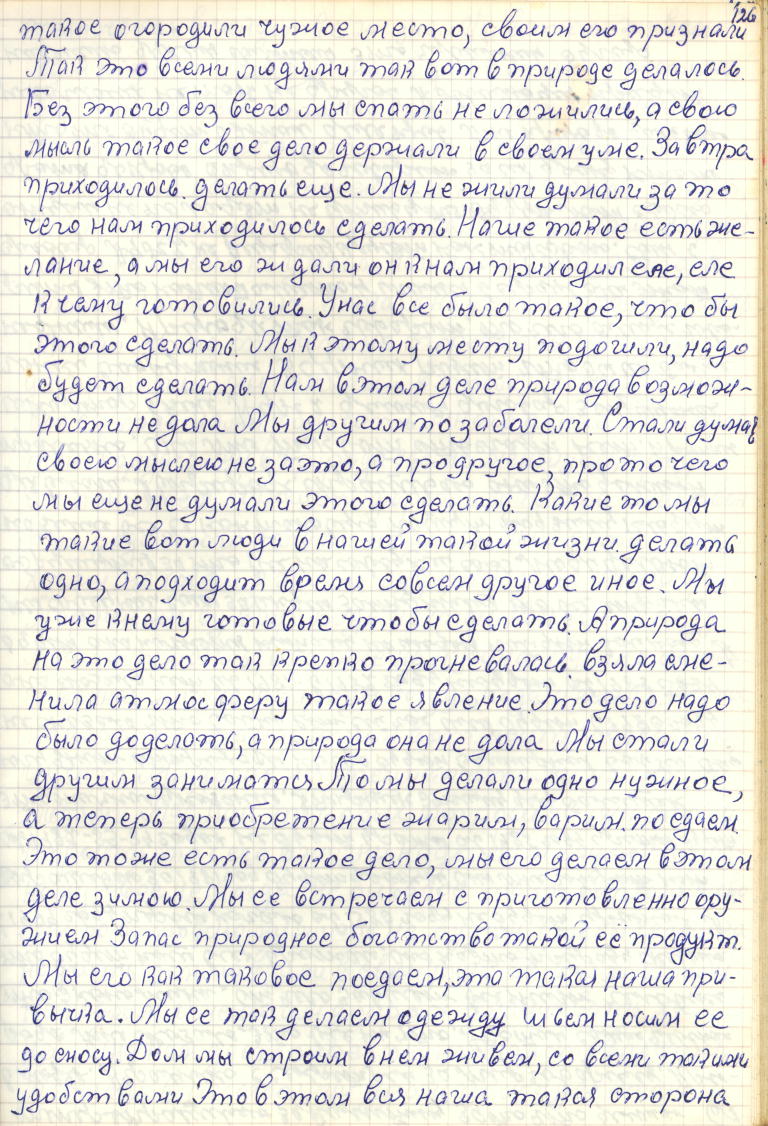 126
такое огородили чужое место, своим его признали
Так это всеми людями так вот в природе делалось.
Без этого без всего мы спать не ложились, а свою
мысль такое свое дело держали в своем уме. Завтра
приходилось делать еще. Мы не жили думали за то
чего нам приходилось сделать. Наше такое есть же-
лание, а мы его ждали он к нам приходил еле, еле
к чему готовились. У нас все было такое, что бы
этого сделать. Мы к этому месту подошли, надо
будет сделать. Нам в этом деле природа возмож-
ности не дала Мы другим по заболели. Стали думать
своею мыслею не за это, а про другое, про то чего
мы еще не думали этого сделать. Какие то мы
такие вот люди в нашей такой жизни. делать
одно, а подходит время совсем другое иное. Мы
уже к нему готовые чтобы сделать. А природа
на это дело так крепко прогневалась. взяла сме-
нила атмосферу такое явление. Это дело надо
было доделать, а природа она не дала Мы стали
другим заниматся То мы делали одно нужное,
а теперь приобретение жарим, варим. поедаем.
Это тоже есть такое дело, мы его делаем в этом
деле зимою. Мы ее встречаем с приготовленно ору-
жием Запас природное богатство такой её продукт.
Мы его как таковое поедаем, эта такая наша при-
вычка. Мы ее так делаем одежду шьем носим ее
до сносу. Дом мы строим в нем живем, со всеми такими
удобствами Это в этом вся наша такая сторона